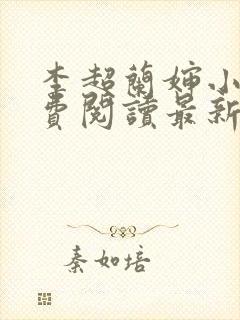 李超蘭婶小
費閱讀最新
秦如培